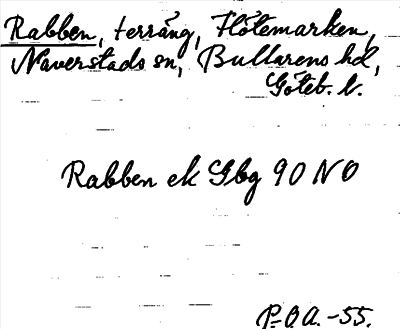 Rabben, terräng, Flötemarken,
Naverstads sn, Bullarens hd,
Göteb. l.
Rabben ek Gbg 90 NO
P-O.A. -55.